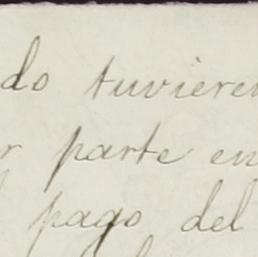 do tuvieren
r parte en
pago del